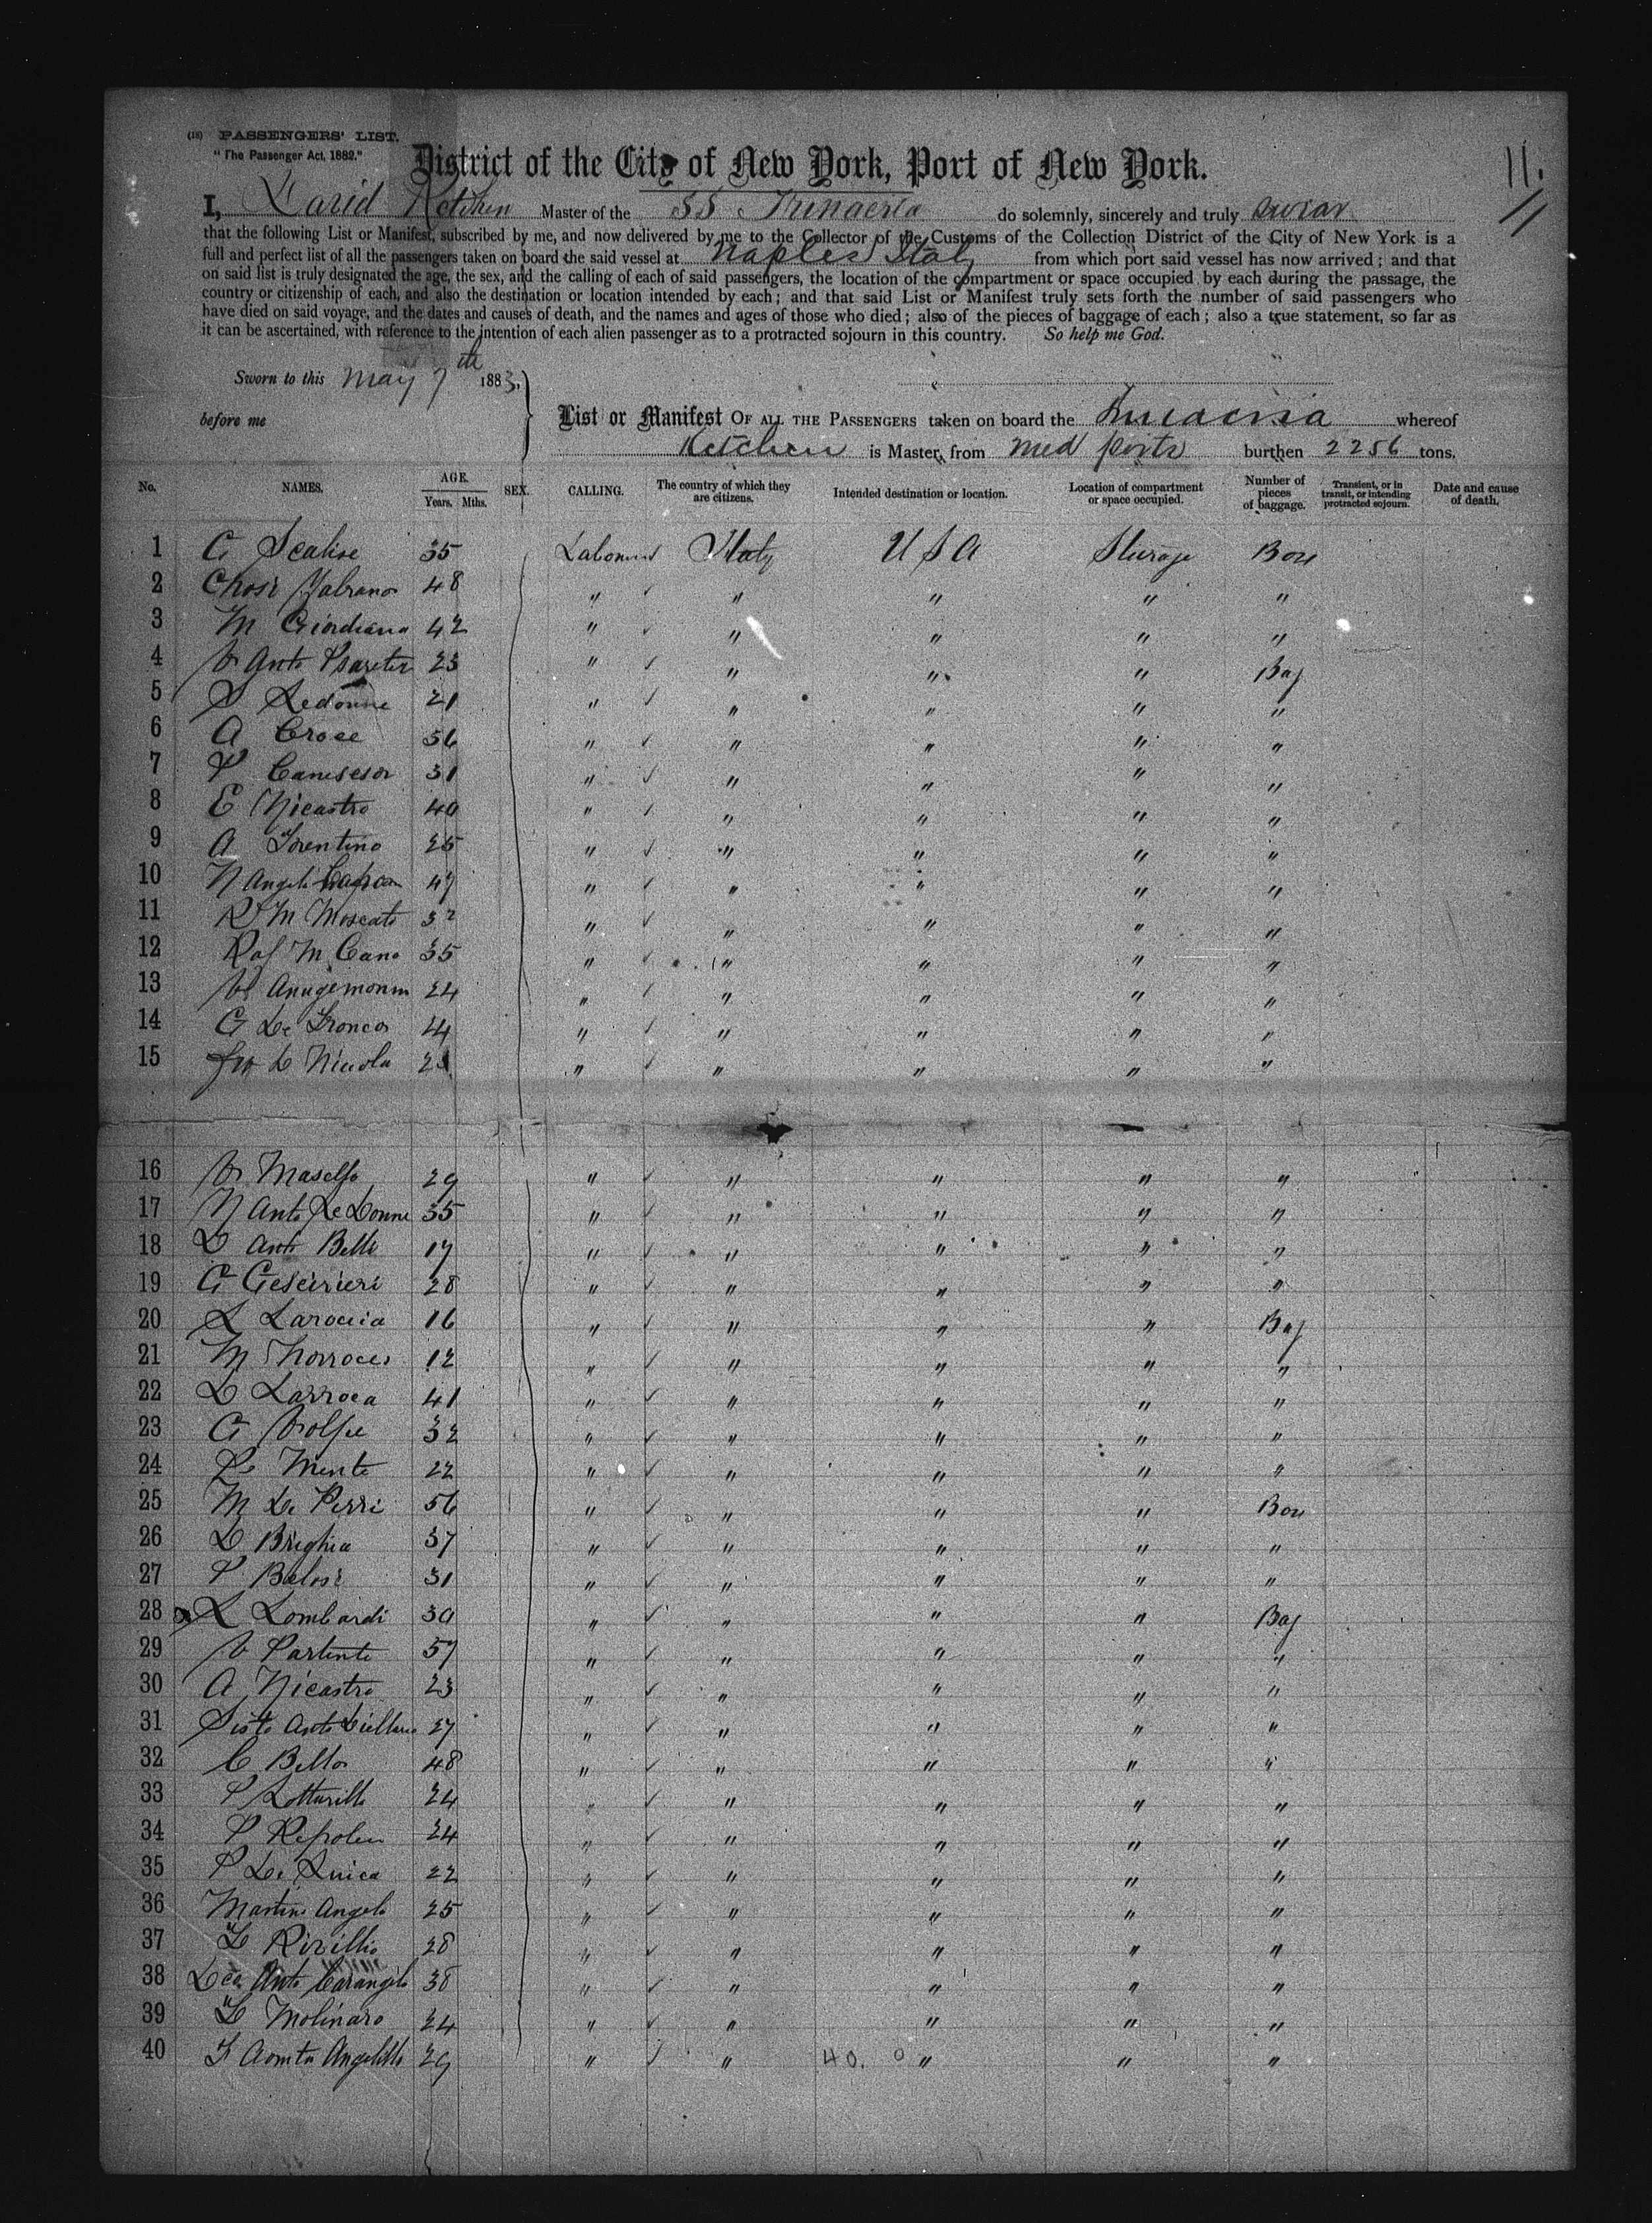 (18) PASSENGERS' LIST.
"The Passenger Act, 1882."
District of the City of New York, Port of New York.
11.
I, David Ketchen Master of the SS Trinacria do solemnly, sincerely and truly swear
that the following List or Manifest, subscribed by me, and now delivered by me to the Collector of the Customs of the Collection District of the City of New York is a
full and perfect list of all the passengers taken on board the said vessel at Naples Italy from which port said vessel has now arrived; and that
on said list is truly designated the age, the sex, and the calling of each of said passengers, the location of the compartment or space occupied by each during the passage, the
country or citizenship of each, and also the destination or location intended by each; and that said List or Manifest truly sets forth the number of said passengers who
have died on said voyage, and the dates and causes of death, and the names and ages of those who died; also of the pieces of baggage of each; also a true statement, so far as
it can be ascertained, with reference to the intention of each alien passenger as to a protracted sojourn in this country. So help me God.
Sworn to this May 7th 1883,
before me
List or Manifest OF ALL THE PASSENGERS taken on board the Trinacria whereof
Ketchen is Master, from Med ports burthen 2256 tons.
No. NAMES. AGE. Years. Mths. SEX. CALLING. The country of which they are citizens. Intended destination or location. Location of compartment or space occupied. Number of pieces of baggage. Transient, or in transit, or intending protracted sojourn. Date and cause of death.
1 G Scalise 35 Labourers Italy U S A Sturage Box
2 48 " " " " "
3 M Giordano 42 " " " " "
4 V Anto 23 " " " " Bag
5 S Ledonne 21 " " " " "
6 A Croce 56 " " " " "
7 P 31 " " " " "
8 E Nicastro 40 " " " " "
9 A Trentino 25 " " " " "
10 N Angelo 47 " " " " "
11 R M Moscato " " " " "
12 Raf M Cano 35 " " " " "
13 V 24 " " " " "
14 G De 44 " " " " "
15 Nicola " " " " "
16 V 29 " " " " "
17 N Anto Le Donne 35 " " " " "
18 D Anto Belli 17 " " " " "
19 G 28 " " " " "
20 L 16 " " " " Bag
21 M 12 " " " " "
22 D Larroca 41 " " " " "
23 G Volpe 32 " " " " "
24 22 " " " " "
25 M De Perri 56 " " " " Box
26 D Brighia 37 " " " " "
27 P 31 " " " " "
28 L Lombardi 30 " " " " Bag
29 V Partente 57 " " " " "
30 A Nicastro 23 " " " " "
31 Sisto Anto 27 " " " " "
32 C Bello 48 " " " " "
33 P 24 " " " " "
34 P 24 " " " " "
35 P De Luica 22 " " " " "
36 Martino Angelo 25 " " " " "
37 Rivillio 28 " " " " "
38 Anto Carangelo 38 " " " " "
39 Molinaro 24 " " " " "
40 Angelillo 29 " " 40. " " "